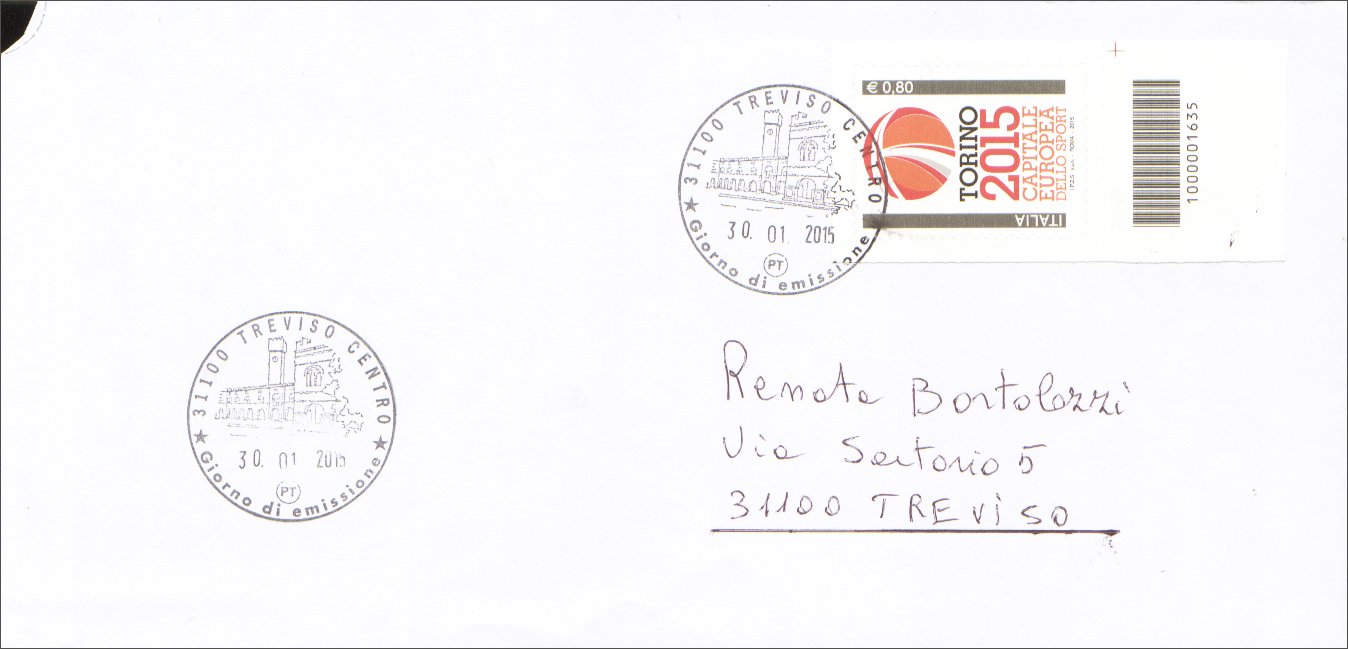 € 0,80
TORINO
2015
CAPITALE
EUROPEA
DELLO SPORT
I.P.Z.S. S.p.A. - ROMA 2015
ITALIA
1000001635
31100 TREVISO CENTRO
30. 01. 2015
PT
Giorno di emissione
31100 TREVISO CENTRO
30. 01 2015
PT
Giorno di emissione
Renata Bortolozzi
Via Sartorio 5
31100 TREVISO